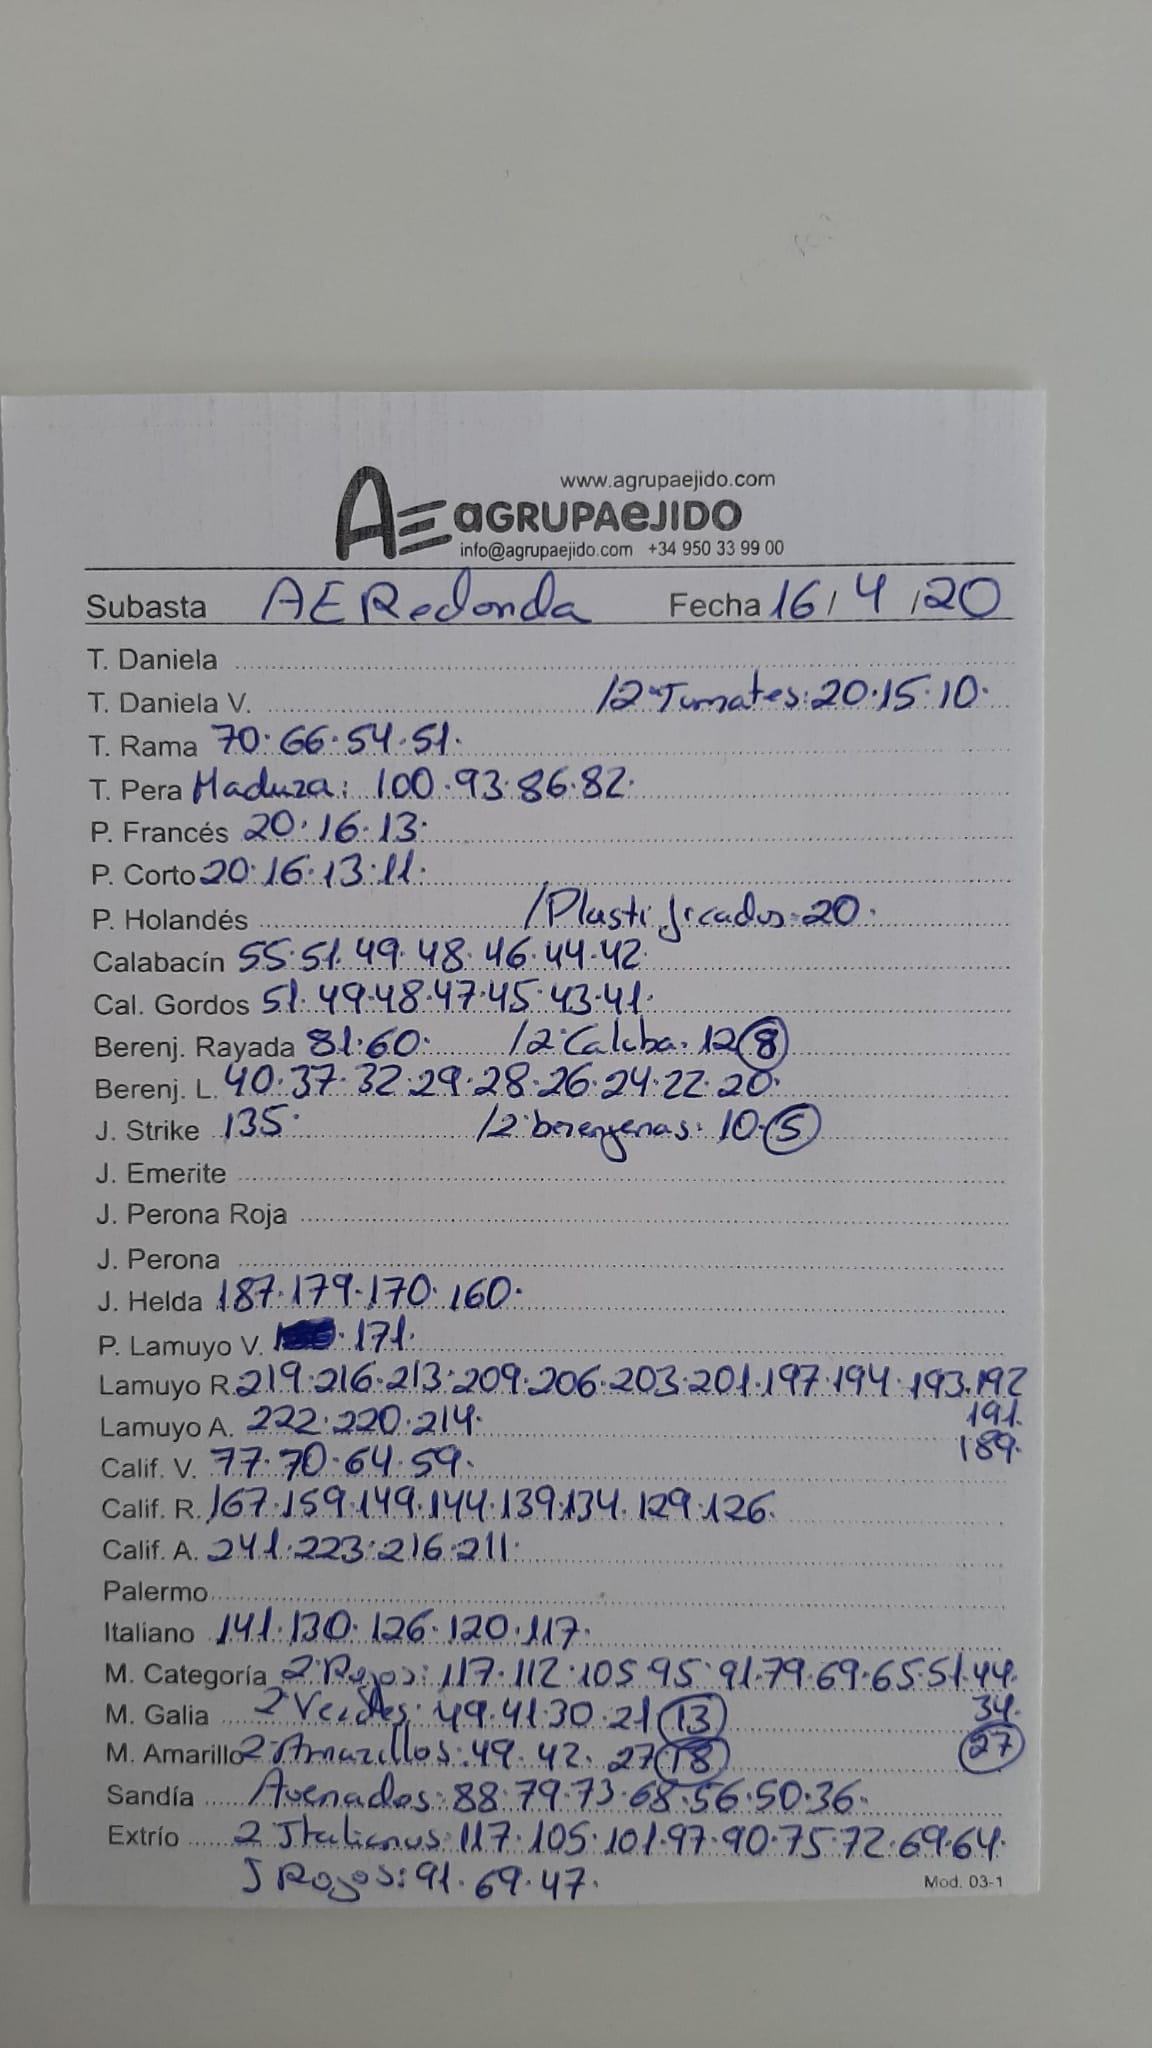 www.agrupaejido.com
AE aGRUPAeJIDO
info@agrupaejido.com +34 950 33 99 00
Subasta AE Redonda Fecha 16/4/20
T. Daniela
T. Daniela V. /2ª Tumates: 20.15.10.
T. Rama 70.66.54.51.
T. Pera Maduza: 100.93.86.82.
P. Francés 20.16.13.
P. Corto 20.16.13.11.
P. Holandés /Plastificados 20.
Calabacín 55.51.49.48.46.44.42.
Cal. Gordos 51.49.48.47.45.43.41.
Berenj. Rayada 81.60. /2ª Calaba. 12 8
Berenj. L. 40.37.32.29.28.26.24.22.20.
J. Strike 135. /2ª berengenas: 10.5
J. Emerite
J. Perona Roja
J. Perona
J. Helda 187.179.170.160.
P. Lamuyo V. 171.
Lamuyo R. 219.216.213.209.206.203.201.197.194.193.192
191.
Lamuyo A. 222.220.214.
189.
Calif. V. 77.70.64.59.
Calif. R. 167.159.149.144.139.134.129.126.
Calif. A. 241.223.216.211.
Palermo
Italiano 141.130.126.120.117.
M. Categoría 2ª Rojos: 117.112.105.95.91.79.69.65.51.44.
34.
M. Galia 2ª Verdes: 49.41.30.21 13
M. Amarillo 2ª Amarillos: 49.42.27 18 27
Sandía Avenados: 88.79.73.68.56.50.36.
Extrío 2 Italianos: 117.105.101.97.90.75.72.69.64.
J Rojos: 91.69.47.
Mod. 03-1